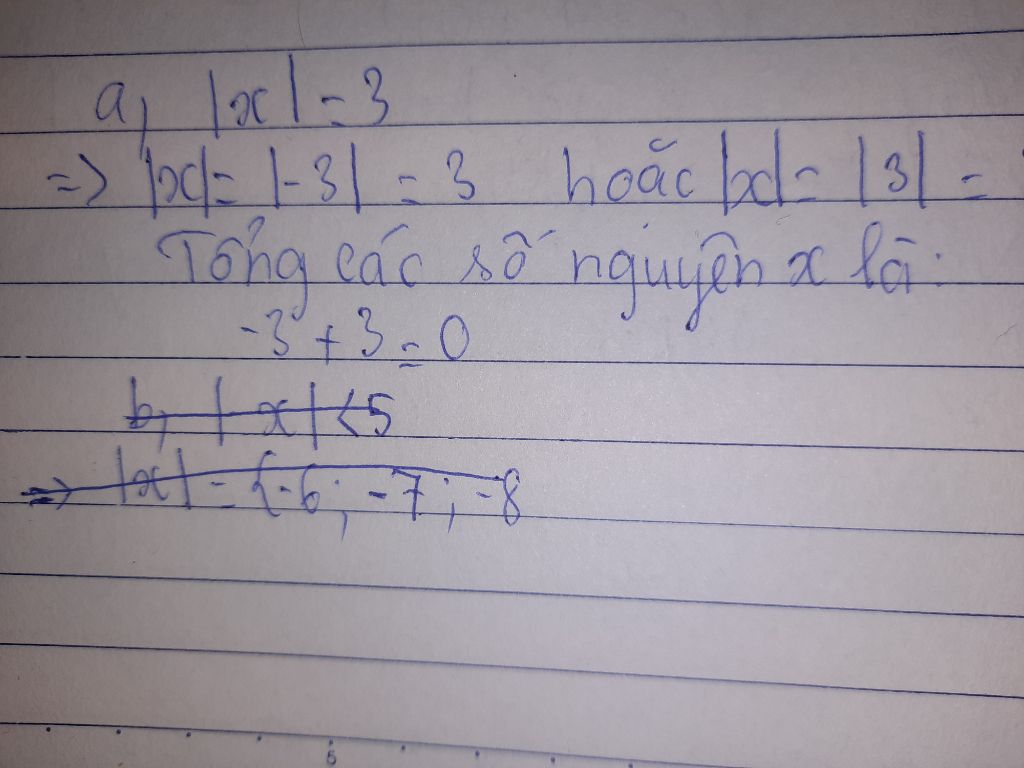 a, |x| = 3
=> |x| = |-3| = 3 hoặc |x| = |3| =
Tổng các số nguyên x là:
-3 + 3 = 0
b, |x| < 5
=> |x| = {-6; -7; -8
6